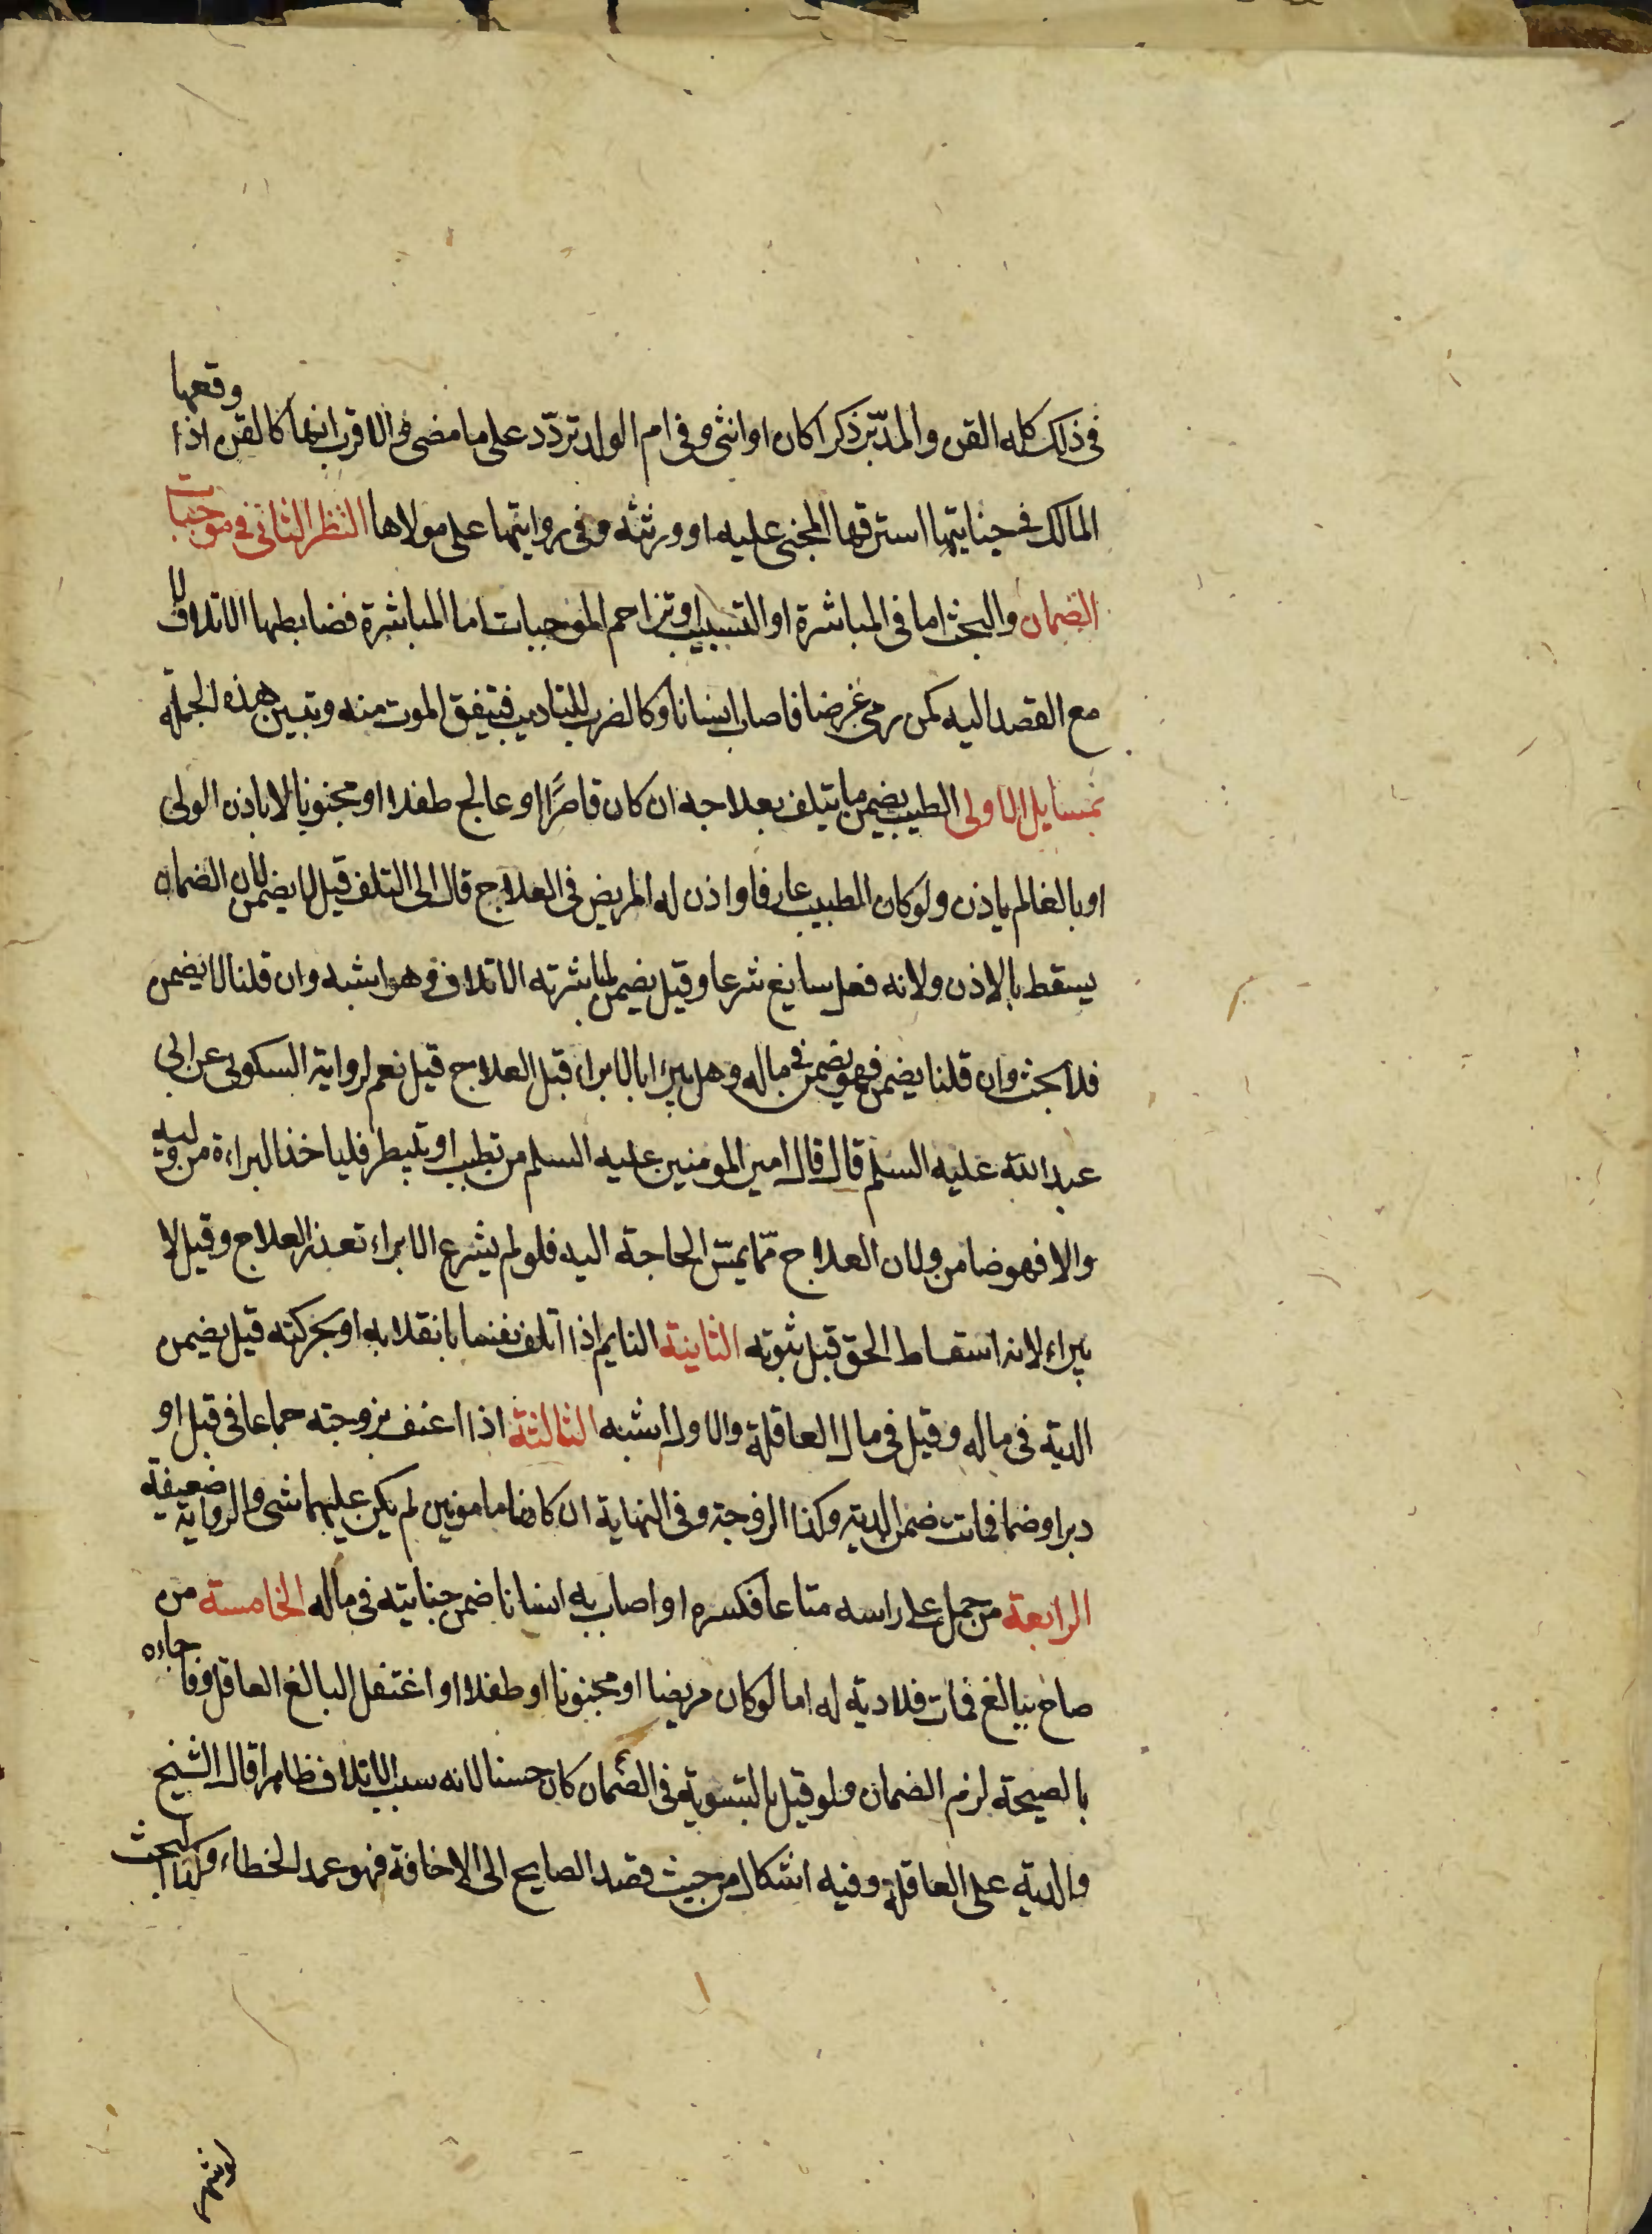 في ذلك كله القن والمدبّر ذكرا كان او انثى وفي ام الولد تردّد على ما مضى والاقرب انها كالقن اذا وقعها
المالك في جنايتها استرقها المجني عليه او ورثته وفي رواية انها على مولاها النظر الثاني في موجبات
الضمان والبحث اما في المباشرة او التسبيب او تزاحم الموجبات اما المباشرة فضابطها الاتلاف لا
مع القصد اليه كمن رمى غرضا فاصاب انسانا وكالضرب للتاديب فيتفق الموت منه وتبين هذه الجملة
بمسايل الاولى الطبيب يضمن ما يتلف بعلاجه ان كان قاصرًا او عالج طفلا او مجنونا لا باذن الولي
او بالغا لم ياذن ولو كان الطبيب عارفا واذن له المريض في العلاج قال الى التلف قيل لا يضمن لان الضمان
يسقط بالاذن ولانه فعل سايغ شرعا وقيل يضمن لمباشرته الاتلاف وهو اشبه وان قلنا لا يضمن
فلا بحث وان قلنا يضمن فهو يضمن في ماله وهل يبرا بالابراء قبل العلاج قيل نعم لرواية السكوني عن ابي
عبد الله عليه السلم قال قال امير المومنين عليه السلم من تطبب او تبيطر فلياخذ البراءة من وليه
والا فهو ضامن ولان العلاج ممّا يمسّ الحاجة اليه فلو لم يشرع الابراء تعذر العلاج وقيل لا
يبراء لانه اسقاط الحق قبل ثبوته الثانية النايم اذا اتلف نفسا بانقلابه او بحركته قيل يضمن
الدية في ماله وقيل في مال العاقلة والاول اشبه الثالثة اذا اعنف بزوجته جماعا في قبل او
دبر او ضما فمات ضمن الدية وكذا الزوجة وفي النهاية ان كانا مامونين لم يكن عليهما شي والرواية ضعيفة
الرابعة من حمل على راسه متاعا فكسره او اصاب به انسانا ضمن جنايته في ماله الخامسة من
صاح ببالغ فمات فلا دية له اما لو كان مريضا او مجنونا او طفلا او اغتفل البالغ العاقل وفاجاءه
بالصيحة لزم الضمان ولو قيل بالتسوية في الضمان كان حسنا لانه سبب الاتلاف ظاهرا قال الشيخ
والدية على العاقلة وفيه اشكال من حيث قصد الصايح الى الاخافة فهو عمد الخطاء وكذا البحث
لو شهر